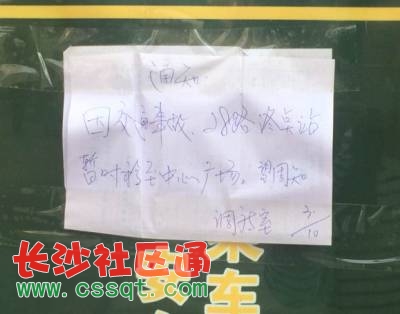 通知
因交通事故、28路终点站
暂时移至中心广场。望周知
调度室 3/10
长沙社区通
www.cssqt.com
车